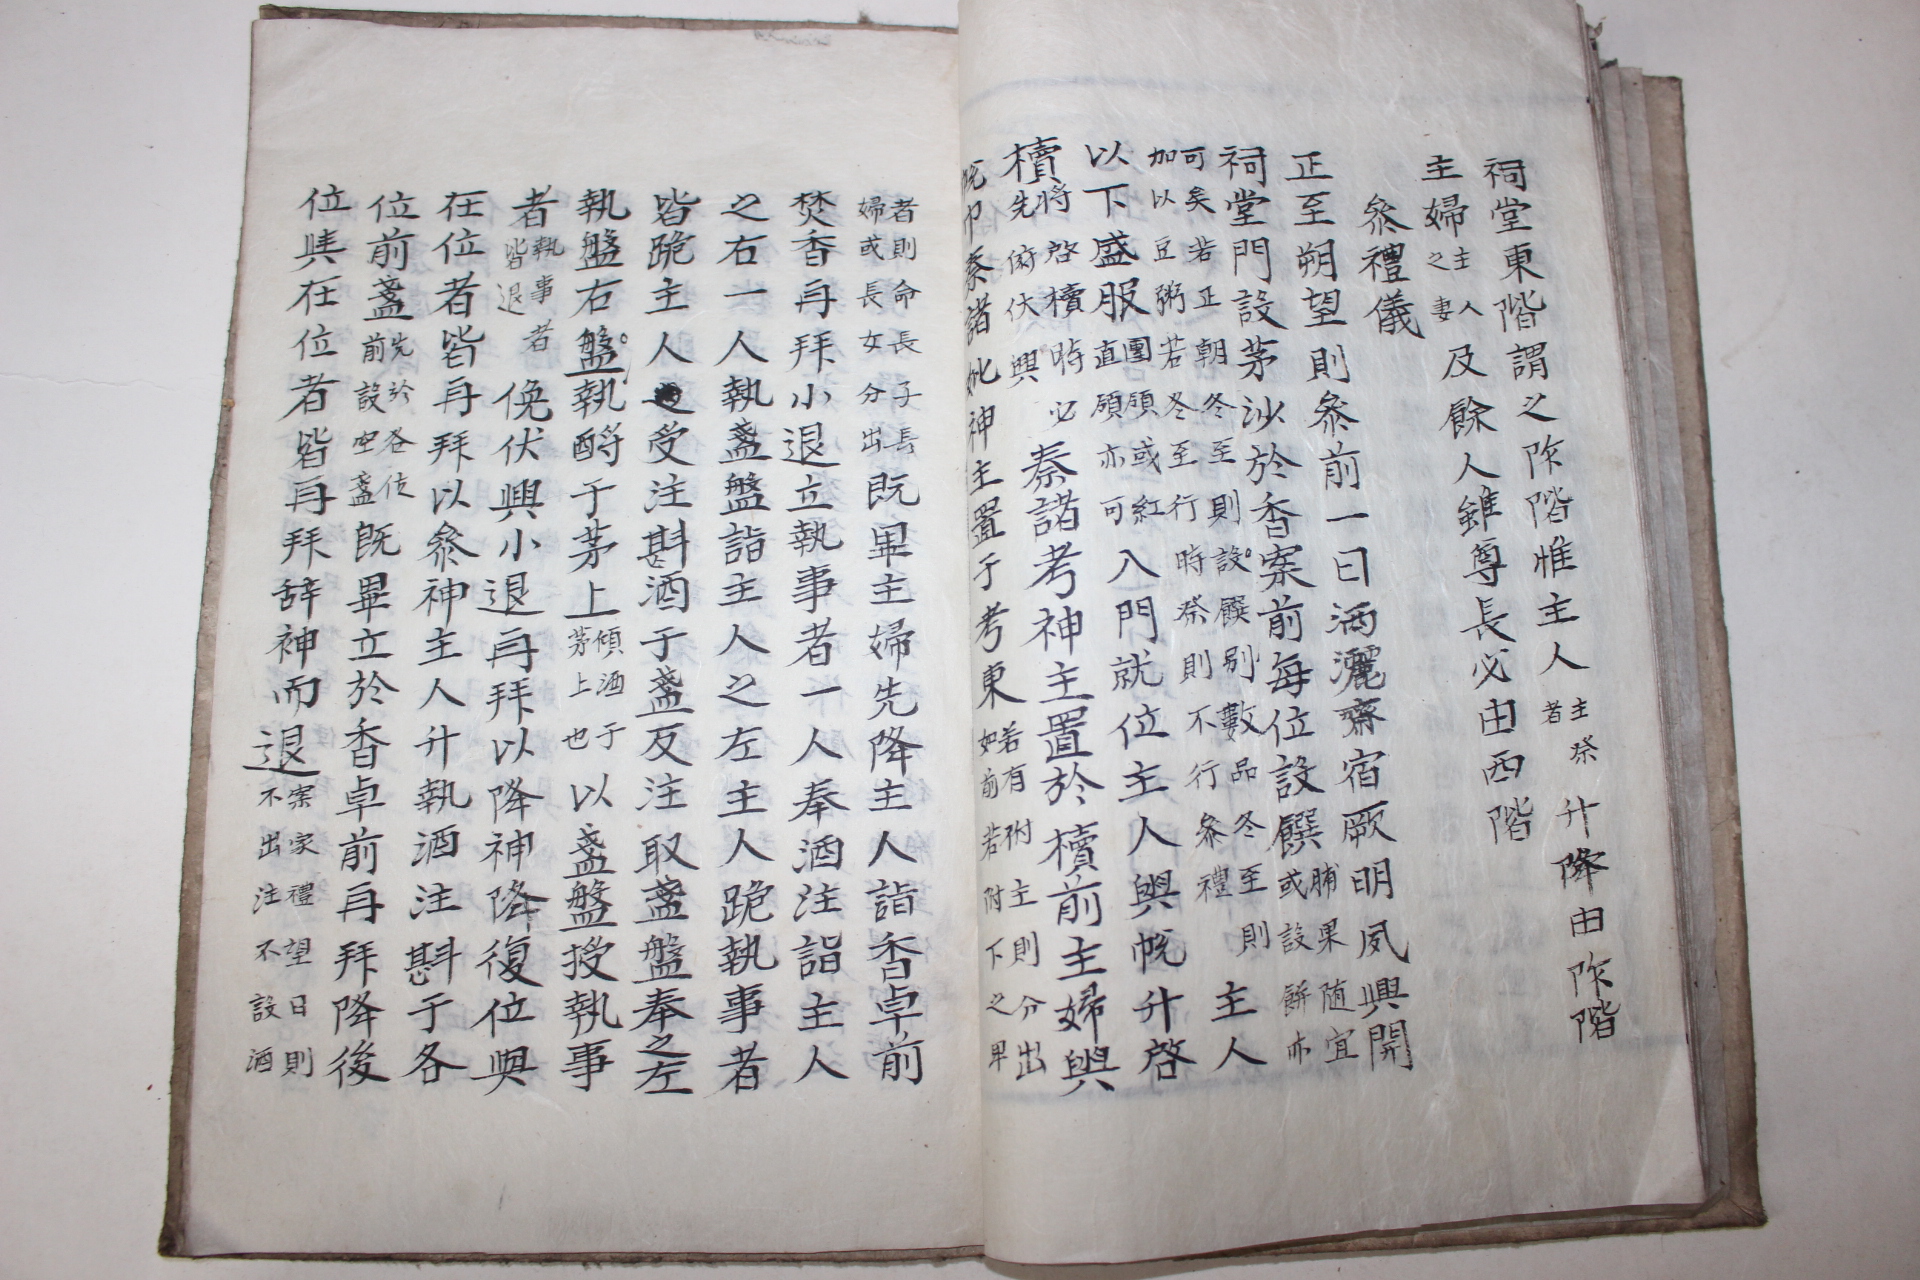 祠堂東階謂之阼階惟主人主祭者升降由阼階
主婦主人之妻及餘人雖尊長必由西階
叅禮儀
正至朔望則叅前一日洒灑齋宿厥明夙興開
祠堂門設茅沙於香案前每位設饌脯果随宜或設餠亦
可矣若正朝冬至則設饌别數品冬至則加以豆粥若冬至行時祭則不行叅禮主人
以下盛服團領或紅直領亦可入門就位主人與帨升啓
櫝將啓櫝時必先俯伏興奏諸考神主置於櫝前主婦與
帨巾奏諸妣神主置于考東若有祔主則分出如前若祔下之卑
者則命長子長婦或長女分出既畢主婦先降主人詣香卓前
焚香再拜小退立執事者一人奉酒注詣主人
之右一人執盞盤詣主人之左主人跪執事者
皆跪主人受注斟酒于盞反注取盞盤奉之左
執盤右盤執酹于茅上傾酒于茅上也以盞盤授執事
者執事者皆退俛伏興小退再拜以降神降復位與
在位者皆再拜以叅神主人升執酒注斟于各
位前盞先於各位前設空盞既畢立於香卓前再拜降後
位與在位者皆再拜辞神而退案家禮望日則不出注不設酒